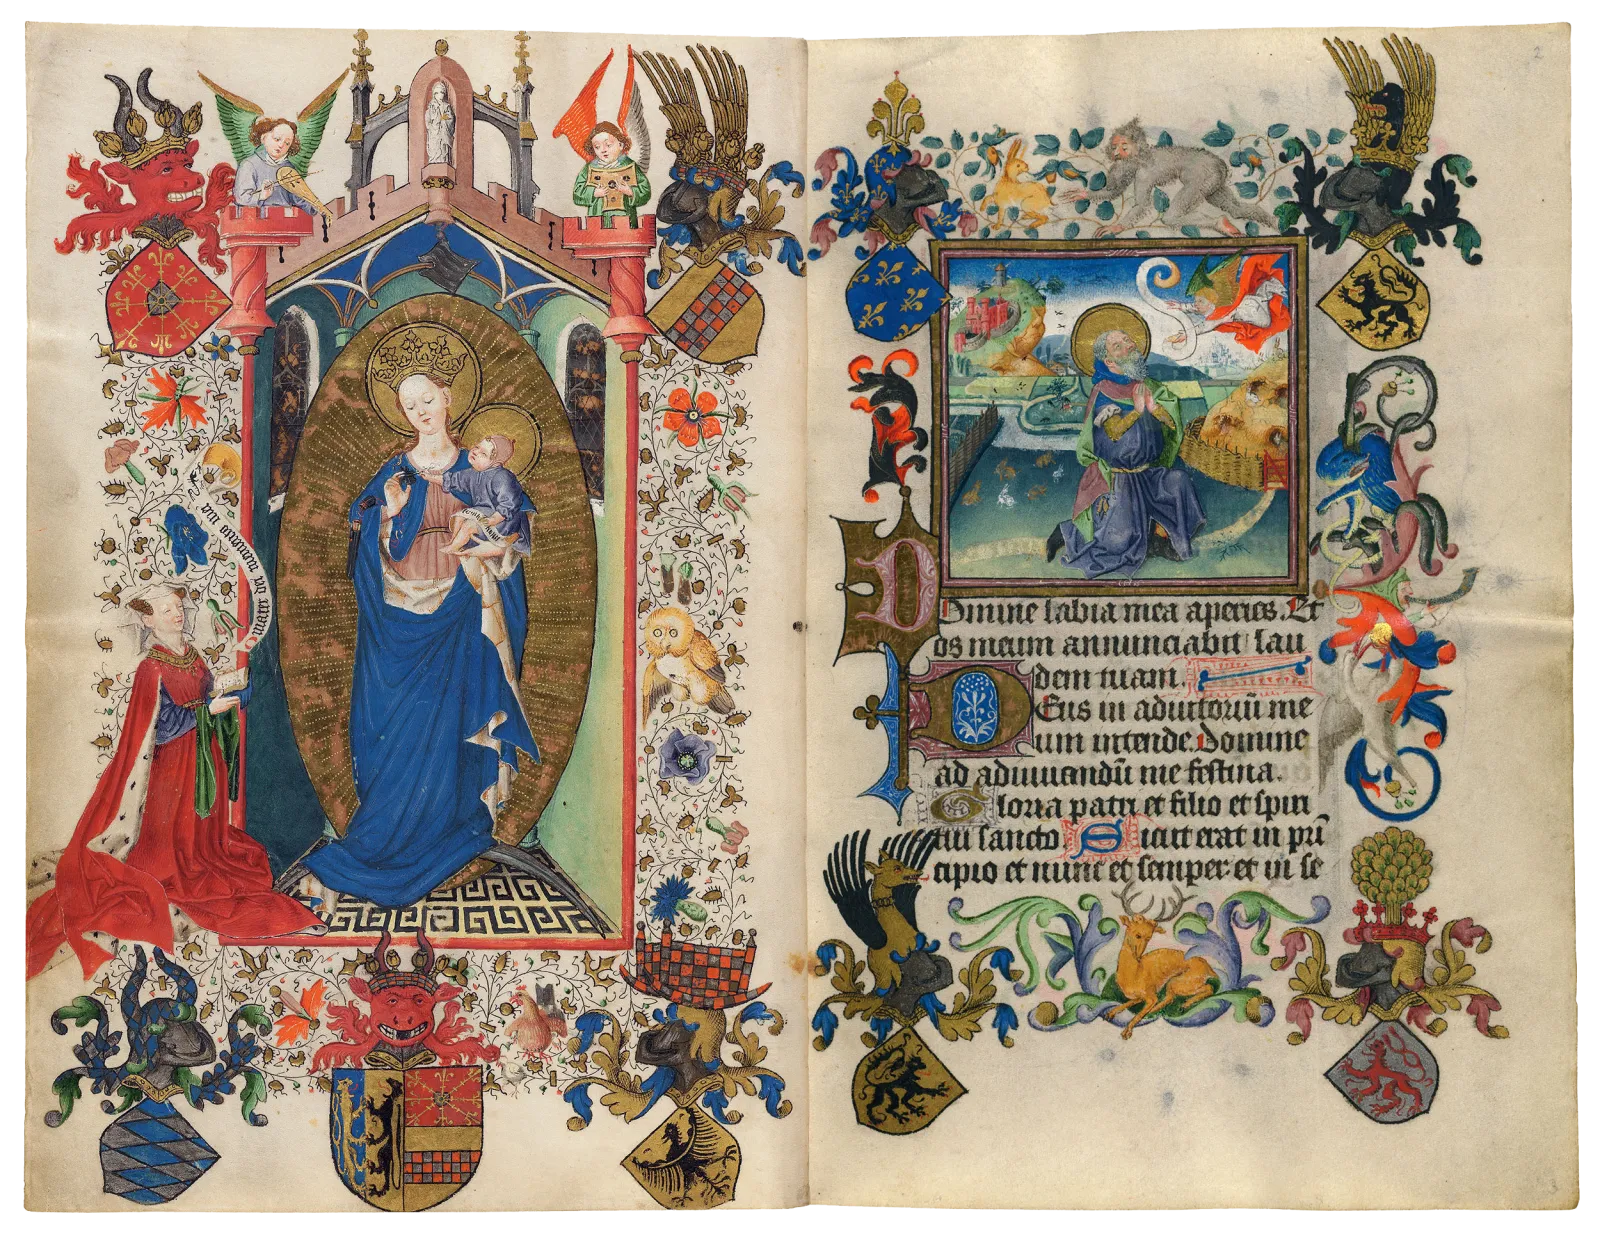 O mater dei memento mei
2
Domine labia mea aperies. Et
os meum annunciabit lau
dem tuam.
Deus in adiutoriū me
um intende. Domine
ad adiuuandū me festina.
Gloria patri et filio et spiri
tui sancto Sicut erat in prī
cipio et nunc et semper: et in se